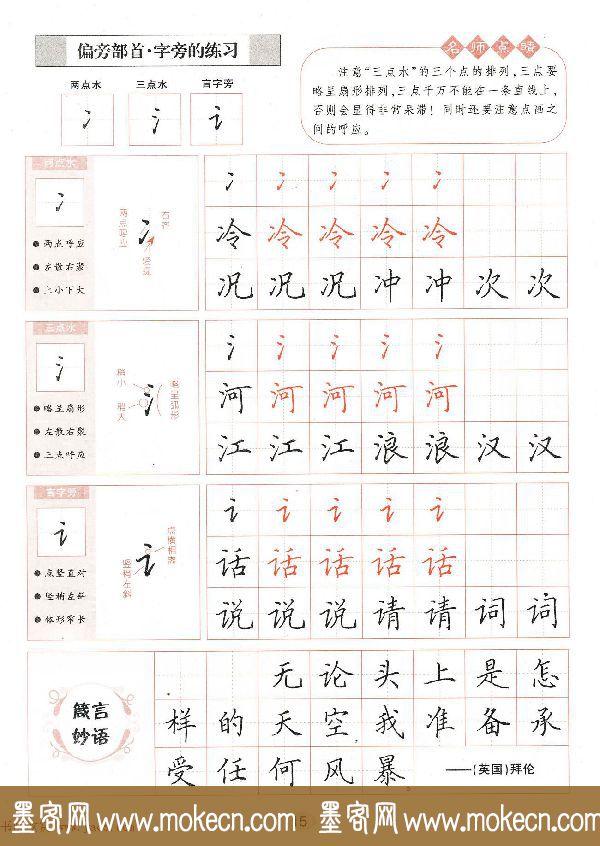 偏旁部首·字旁的练习
名师点睛
注意“三点水”的三个点的排列,三点要
略呈扇形排列,三点千万不能在一条直线上,
否则会显得非常呆滞!同时还要注意点画之
间的呼应。
两点水 三点水 言字旁
冫 氵 讠
两点水
冫
两点呼应
左散右聚
上小下大
两点呼应
右齐
竖直
冫 冫 冫 冫 冫
冷 冷 冷 冷 冷
况 况 况 冲 冲 次 次
三点水
氵
略呈扇形
左散右聚
三点呼应
稍小
稍大
略呈弧形
氵 氵 氵 氵 氵
河 河 河 河 河
江 江 江 浪 浪 汉 汉
言字旁
讠
点竖直对
竖稍左斜
体形窄长
点横相离
竖稍左斜
讠 讠 讠 讠 讠
话 话 话 话 话
说 说 说 请 请 词 词
箴言
妙语
无 论 头 上 是 怎
样 的 天 空 我 准 备 承
受 任 何 风 暴
——(英国)拜伦
墨客网 www.mokecn.com 墨客网 www.mokecn.com